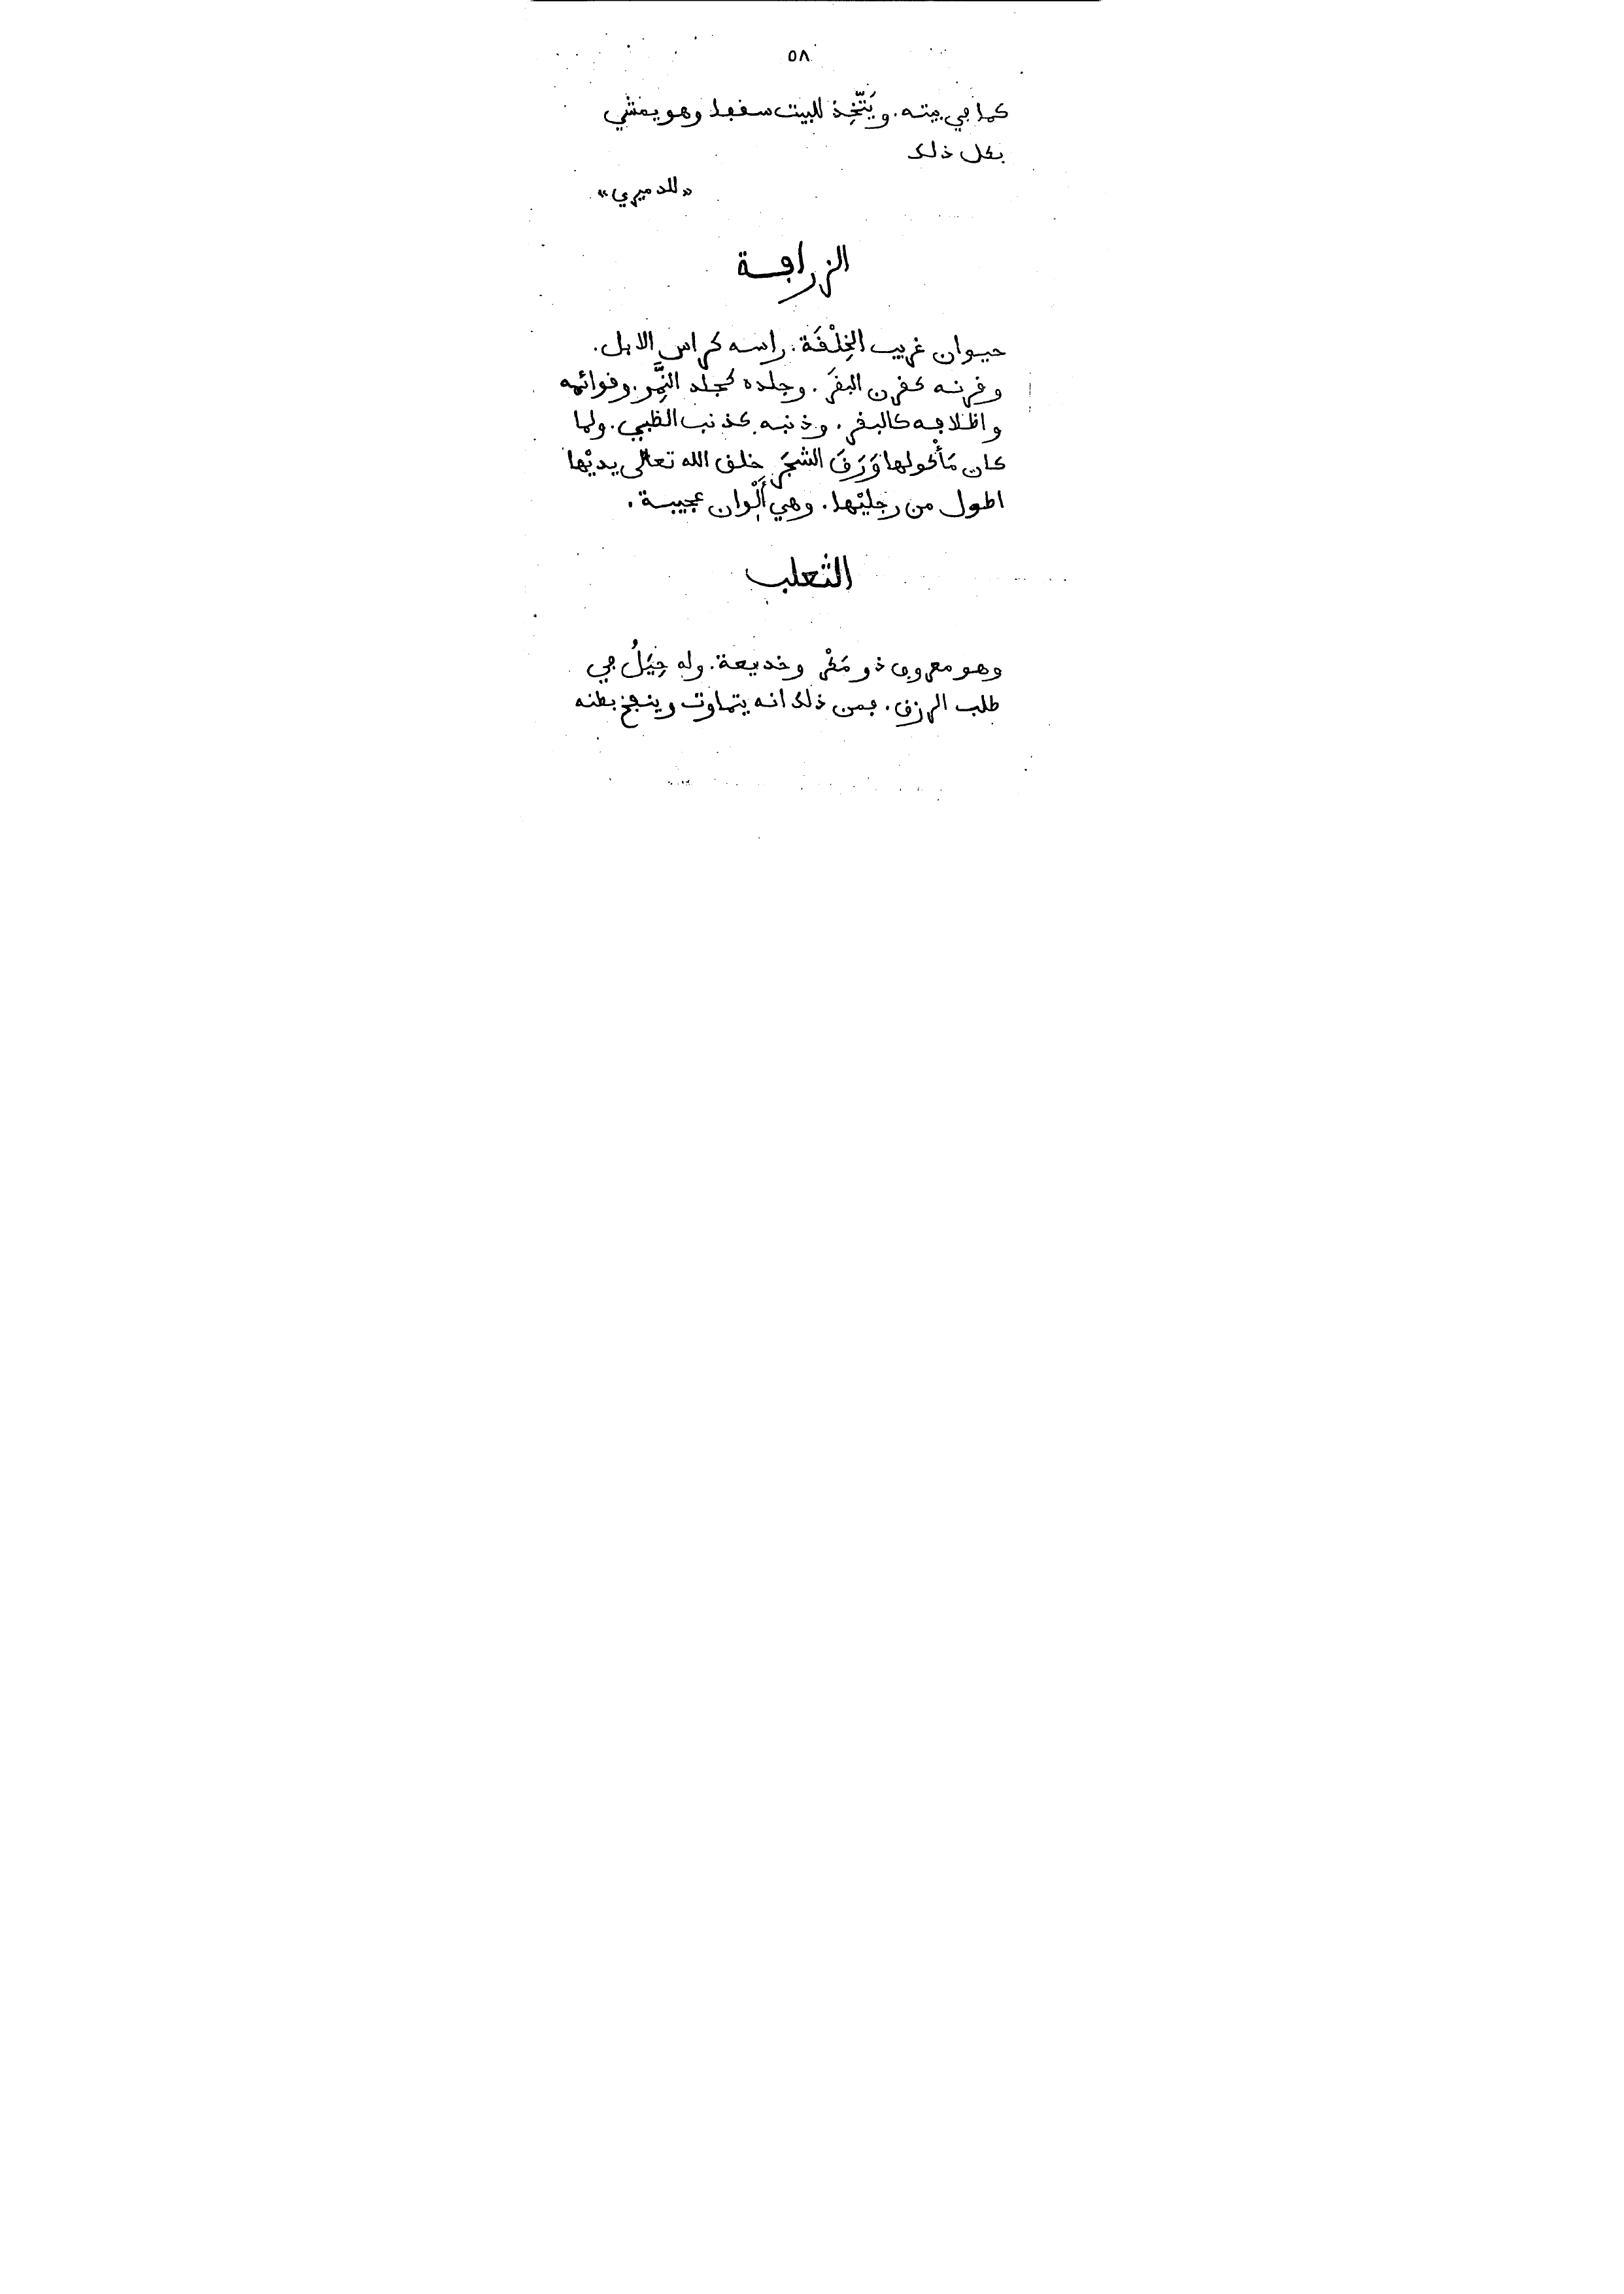 ٥٨
كما في بيته. ويَتَّخِذ للبيت سقفا وهو يمشي
بكل ذلك
«للدميري»
الزرافة
حيوان غريب الخِلْقَة. راسه كراس الابل.
وقرنه كقرن البقَر. وجلده كجلد النَّمِر. وقوائمه
واظلافه كالبقر. وذنبه كذنب الظبي. ولما
كان مَأْكولها وَرَقَ الشجَر خلق الله تعالى يديْها
اطول من رجليْها. وهي أَلْوان عجيبة.
الثعلب
وهو معروف ذو مَكْر وخديعة. وله حِيَلُ في
طلب الرزق. فمن ذلك انه يتماوت وينفخ بطنه